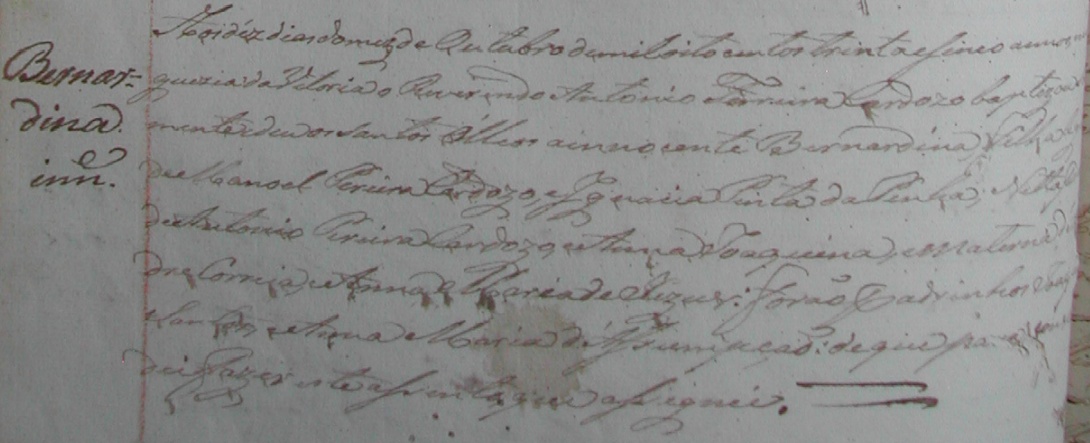 Bernar=
dina.
inn.
Aos déz dias do mez de Outubro de mil oito centos trinta e sinco annos
guezia da Vitoria o Reverendo Antonio Ferreira Cardozo baptizou
mente e deu os Santos Olleos a innocente Bernardina, Filha
de Manoel Pereira Cardozo, e Ignacia Pinta da Penha, Netta
de Antonio Pereira Cardozo, e Anna Joaquina, e Materna de
dre Correia, e Anna Maria de Jezus: forão Padrinhos
e Anna Maria d'Assumpção: de que para
diz fazer este assento que assignei.